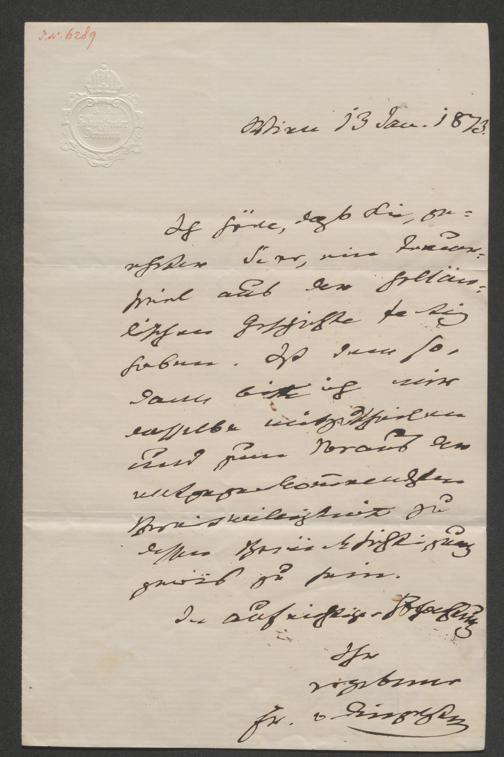 J.N. 6289
Wien 13 Jan. 1873.
Ich höre, daß Sie, ge-
ehrter Herr, ein Trauer-
spiel aus der hollän-
dischen Geschichte fertig
haben. Ist dem so,
dann bitte ich mir
dasselbe mitzutheilen
und zum Voraus der
entgegenkommendsten
Bereitwilligkeit zu
dessen Berücksichtigung
gewiß zu sein.
In aufrichtiger Hochachtung
Ihr
ergebener
Fr. v Dingelstedt